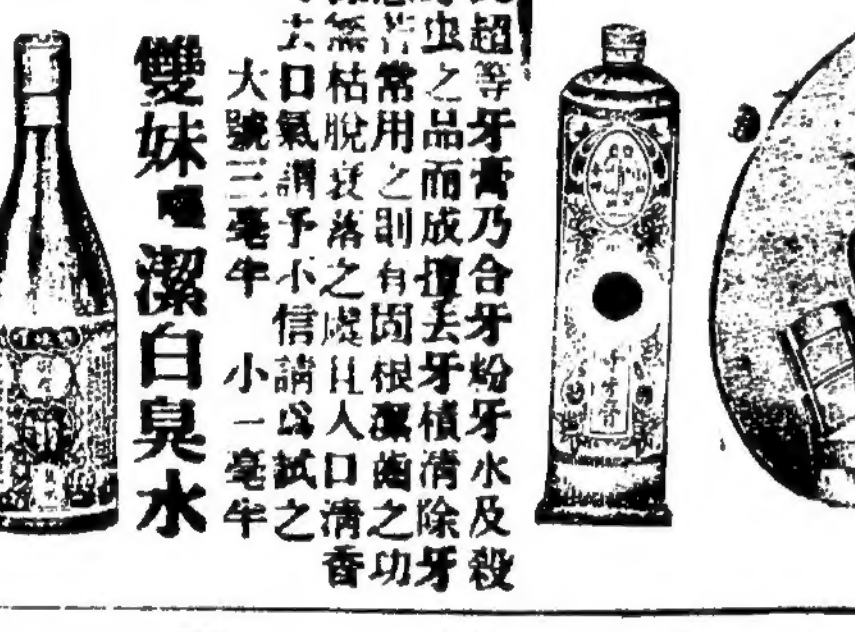 超等牙膏乃合牙粉牙水及殺
虫之品而成擅去牙積清除牙
若常用之則有固根潔齒之功
無枯脫衰落之處且人口清香
去口氣謂予不信請爲試之
大號三毫半　小一毫半
雙妹嘜潔白臭水